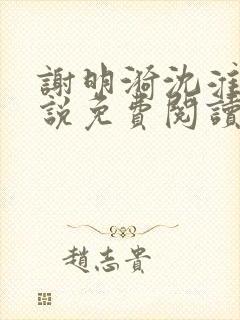 謝明漪沈淮
說免費閱讀
趙志貴